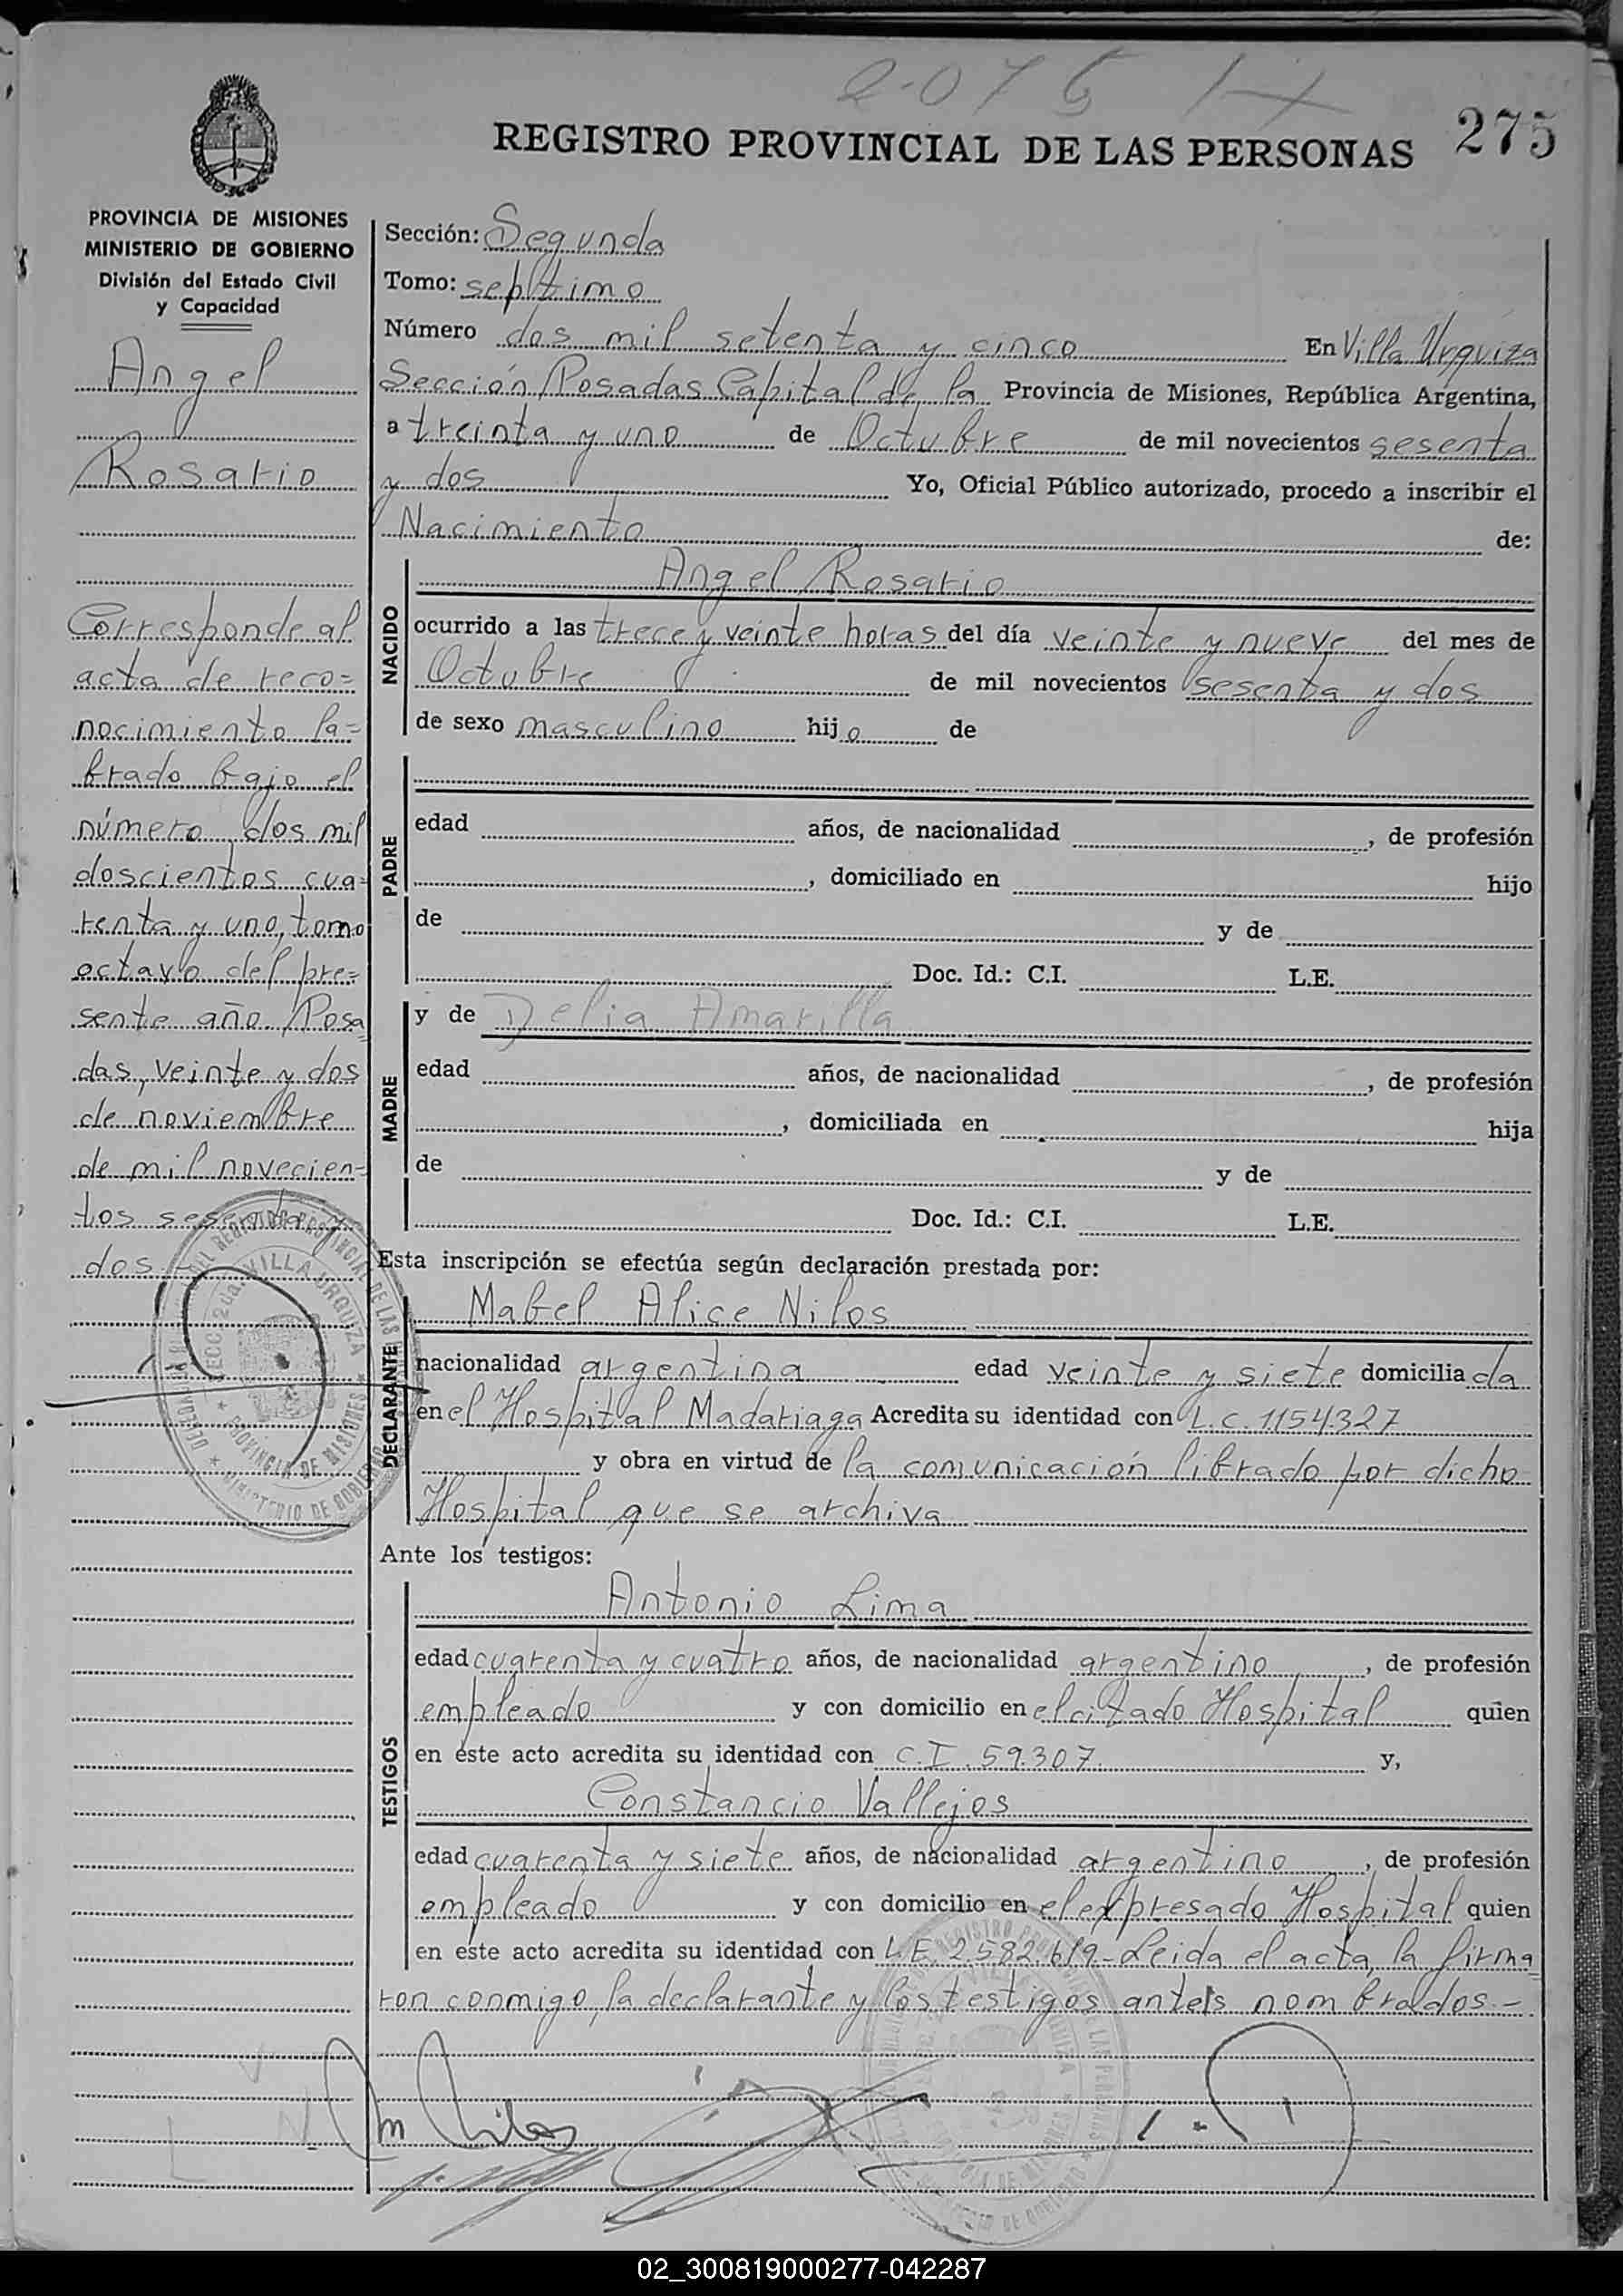 2.075
275
REGISTRO PROVINCIAL DE LAS PERSONAS
PROVINCIA DE MISIONES
MINISTERIO DE GOBIERNO
División del Estado Civil
y Capacidad
Angel
Rosario
Corresponde al
acta de reco=
nocimiento la=
brado bajo el
número dos mil
doscientos cua=
renta y uno, tomo
octavo del pre=
sente año. Posa
das, veinte y dos
de noviembre
de mil novecien=
tos sesenta y
dos.
Sección: Segunda
Tomo: septimo
Número dos mil setenta y cinco En Villa Urquiza
Sección Posadas Capital de la Provincia de Misiones, República Argentina,
a treinta y uno de Octubre de mil novecientos sesenta
y dos Yo, Oficial Público autorizado, procedo a inscribir el
Nacimiento de:
NACIDO
Angel Rosario
ocurrido a las trece y veinte horas del día veinte y nueve del mes de
Octubre de mil novecientos sesenta y dos
de sexo masculino hijo de
PADRE
edad años, de nacionalidad , de profesión
, domiciliado en hijo
de y de
Doc. Id.: C.I. L.E.
MADRE
y de Delia Amarilla
edad años, de nacionalidad , de profesión
, domiciliada en hija
de y de
Doc. Id.: C.I. L.E.
Esta inscripción se efectúa según declaración prestada por:
DECLARANTE
Mabel Alice Nilos
nacionalidad argentina edad veinte y siete domiciliada
en el Hospital Madariaga Acredita su identidad con L.C. 1154327
y obra en virtud de la comunicación librado por dicho
Hospital que se archiva
Ante los testigos:
TESTIGOS
Antonio Lima
edad cuarenta y cuatro años, de nacionalidad argentino, de profesión
empleado y con domicilio en el citado Hospital quien
en este acto acredita su identidad con C.I. 59.307. y,
Constancio Vallejos
edad cuarenta y siete años, de nacionalidad argentino, de profesión
empleado y con domicilio en el expresado Hospital quien
en este acto acredita su identidad con L.E. 2.582.619- Leida el acta, la firma
ron conmigo, la declarante y los testigos antels nombrados.-
VILLA URQUIZA
PROVINCIA DE MISIONES
MINISTERIO DE GOBIERNO
02_300819000277-042287